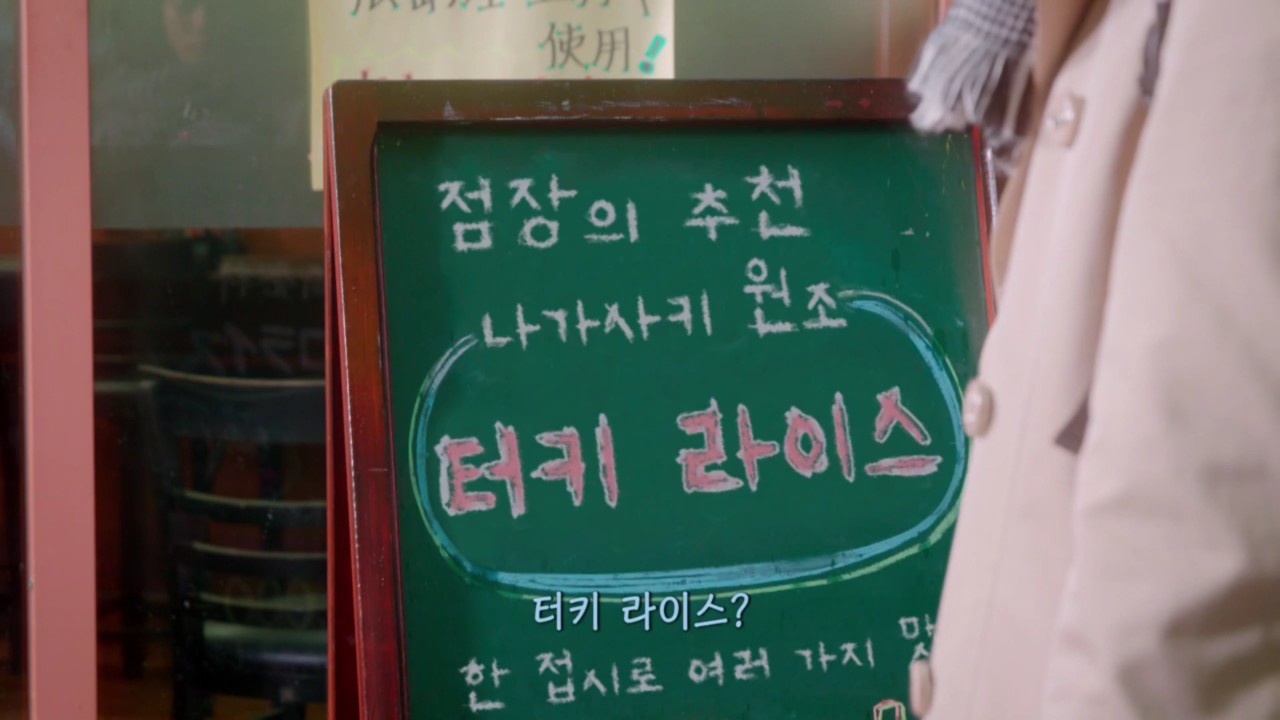 使用!
점장의 추천
나가사키 원조
터키 라이스
터키 라이스?
한 접시로 여러 가지